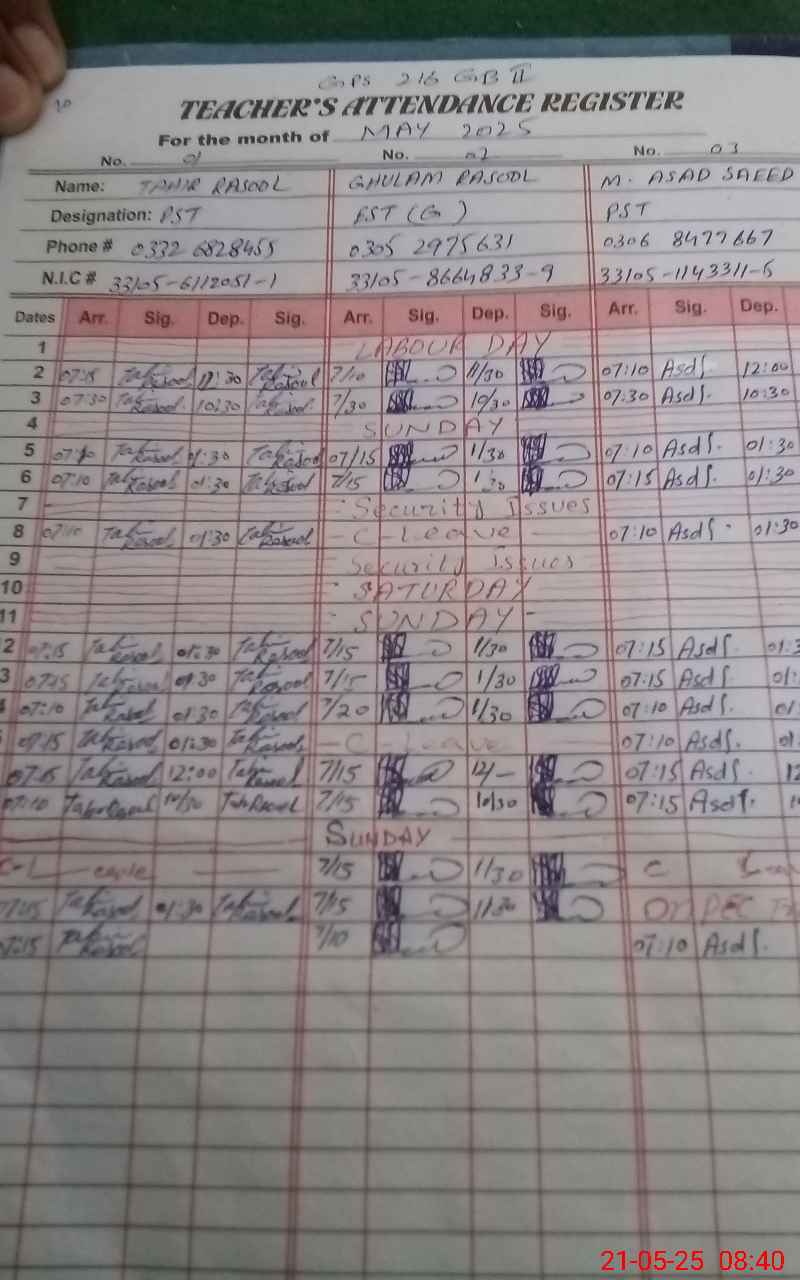 GPS 216 GB II
TEACHER'S ATTENDANCE REGISTER
For the month of MAY 2025
No. 01 No. 02 No. 03
Name: TAHIR RASOOL GHULAM RASOOL M. ASAD SAEED
Designation: PST EST (G) PST
Phone # 0332 6828455 0305 2975631 0306 8477667
N.I.C # 33105-6112051-1 33105-8664833-9 33105-1143311-5
Dates Arr. Sig. Dep. Sig. Arr. Sig. Dep. Sig. Arr. Sig. Dep.
1 LABOUR DAY
2 07:15 Tahir Rasool 11:30 Tahir Rasool 7/10 11/30 07:10 Asd S. 12:00
3 07:30 Tahir Rasool 10:30 Tahir Rasool 7/30 10/30 07:30 Asd S. 10:30
4 SUNDAY
5 07:10 Tahir Rasool 01:30 Tahir Rasool 07/15 1/30 07:10 Asd S. 01:30
6 07:10 Tahir Rasool 01:30 Tahir Rasool 7/15 1/30 07:15 Asd S. 01:30
7 Security Issues
8 07:10 Tahir Rasool 01:30 Tahir Rasool - C-Leave - 07:10 Asd S. 01:30
9 Security Issues
10 SATURDAY
11 - SUNDAY -
2 07:15 Tahir Rasool 01:30 Tahir Rasool 7/15 1/30 07:15 Asd S. 01:3
3 07:15 Tahir Rasool 01:30 Tahir Rasool 7/15 1/30 07:15 Asd S. 01:
07:10 Tahir Rasool 01:30 Tahir Rasool 7/20 1/30 07:10 Asd S. 01
07:15 Tahir Rasool 01:30 Tahir Rasool - C-Leave 07:10 Asd S. 01
07:15 Tahir Rasool 12:00 Tahir Rasool 7/15 12/- 07:15 Asd S. 12
07:10 Tahir Rasool 10/30 Tahir Rasool 7/15 10/30 07:15 Asd S. 10
SUNDAY
C-Leave 7/15 1/30 C
7:15 Tahir Rasool 01:30 Tahir Rasool 7/15 1/30 On PEC
07:15 Tahir Rasool 7/10 07:10 Asd S.
21-05-25 08:40